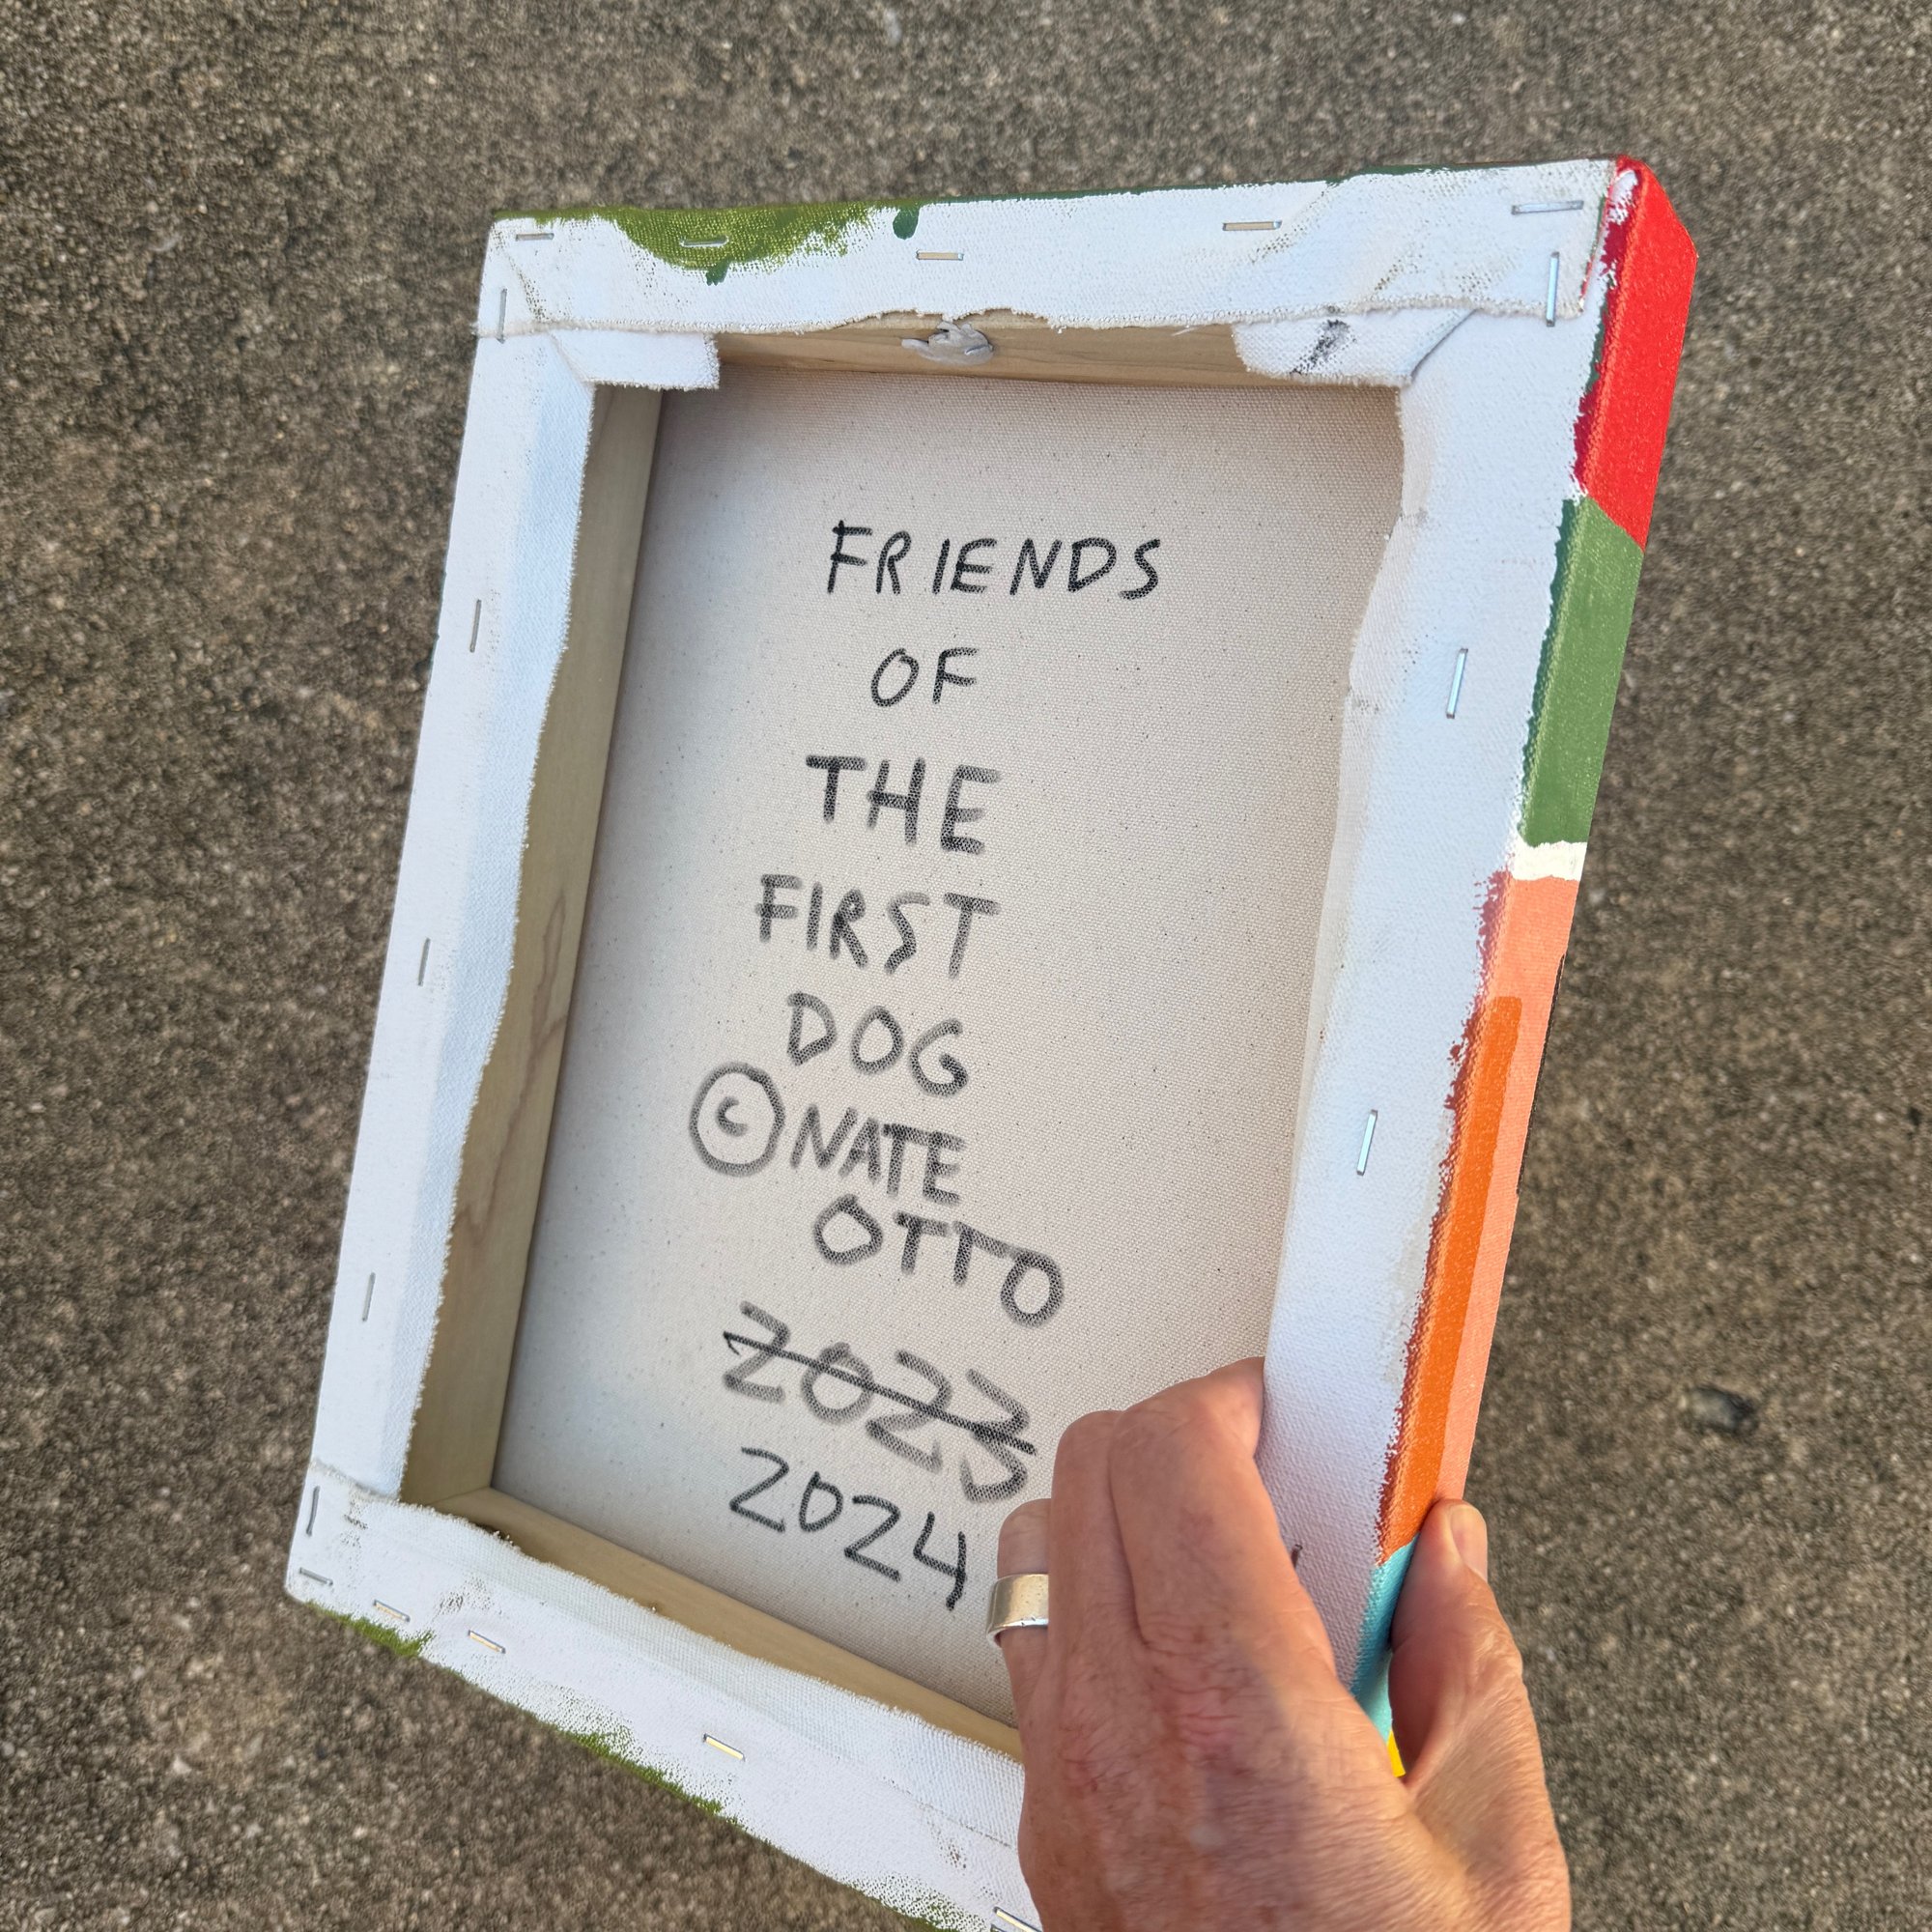 FRIENDS
OF
THE
FIRST
DOG
© NATE
OTTO
2023
2024